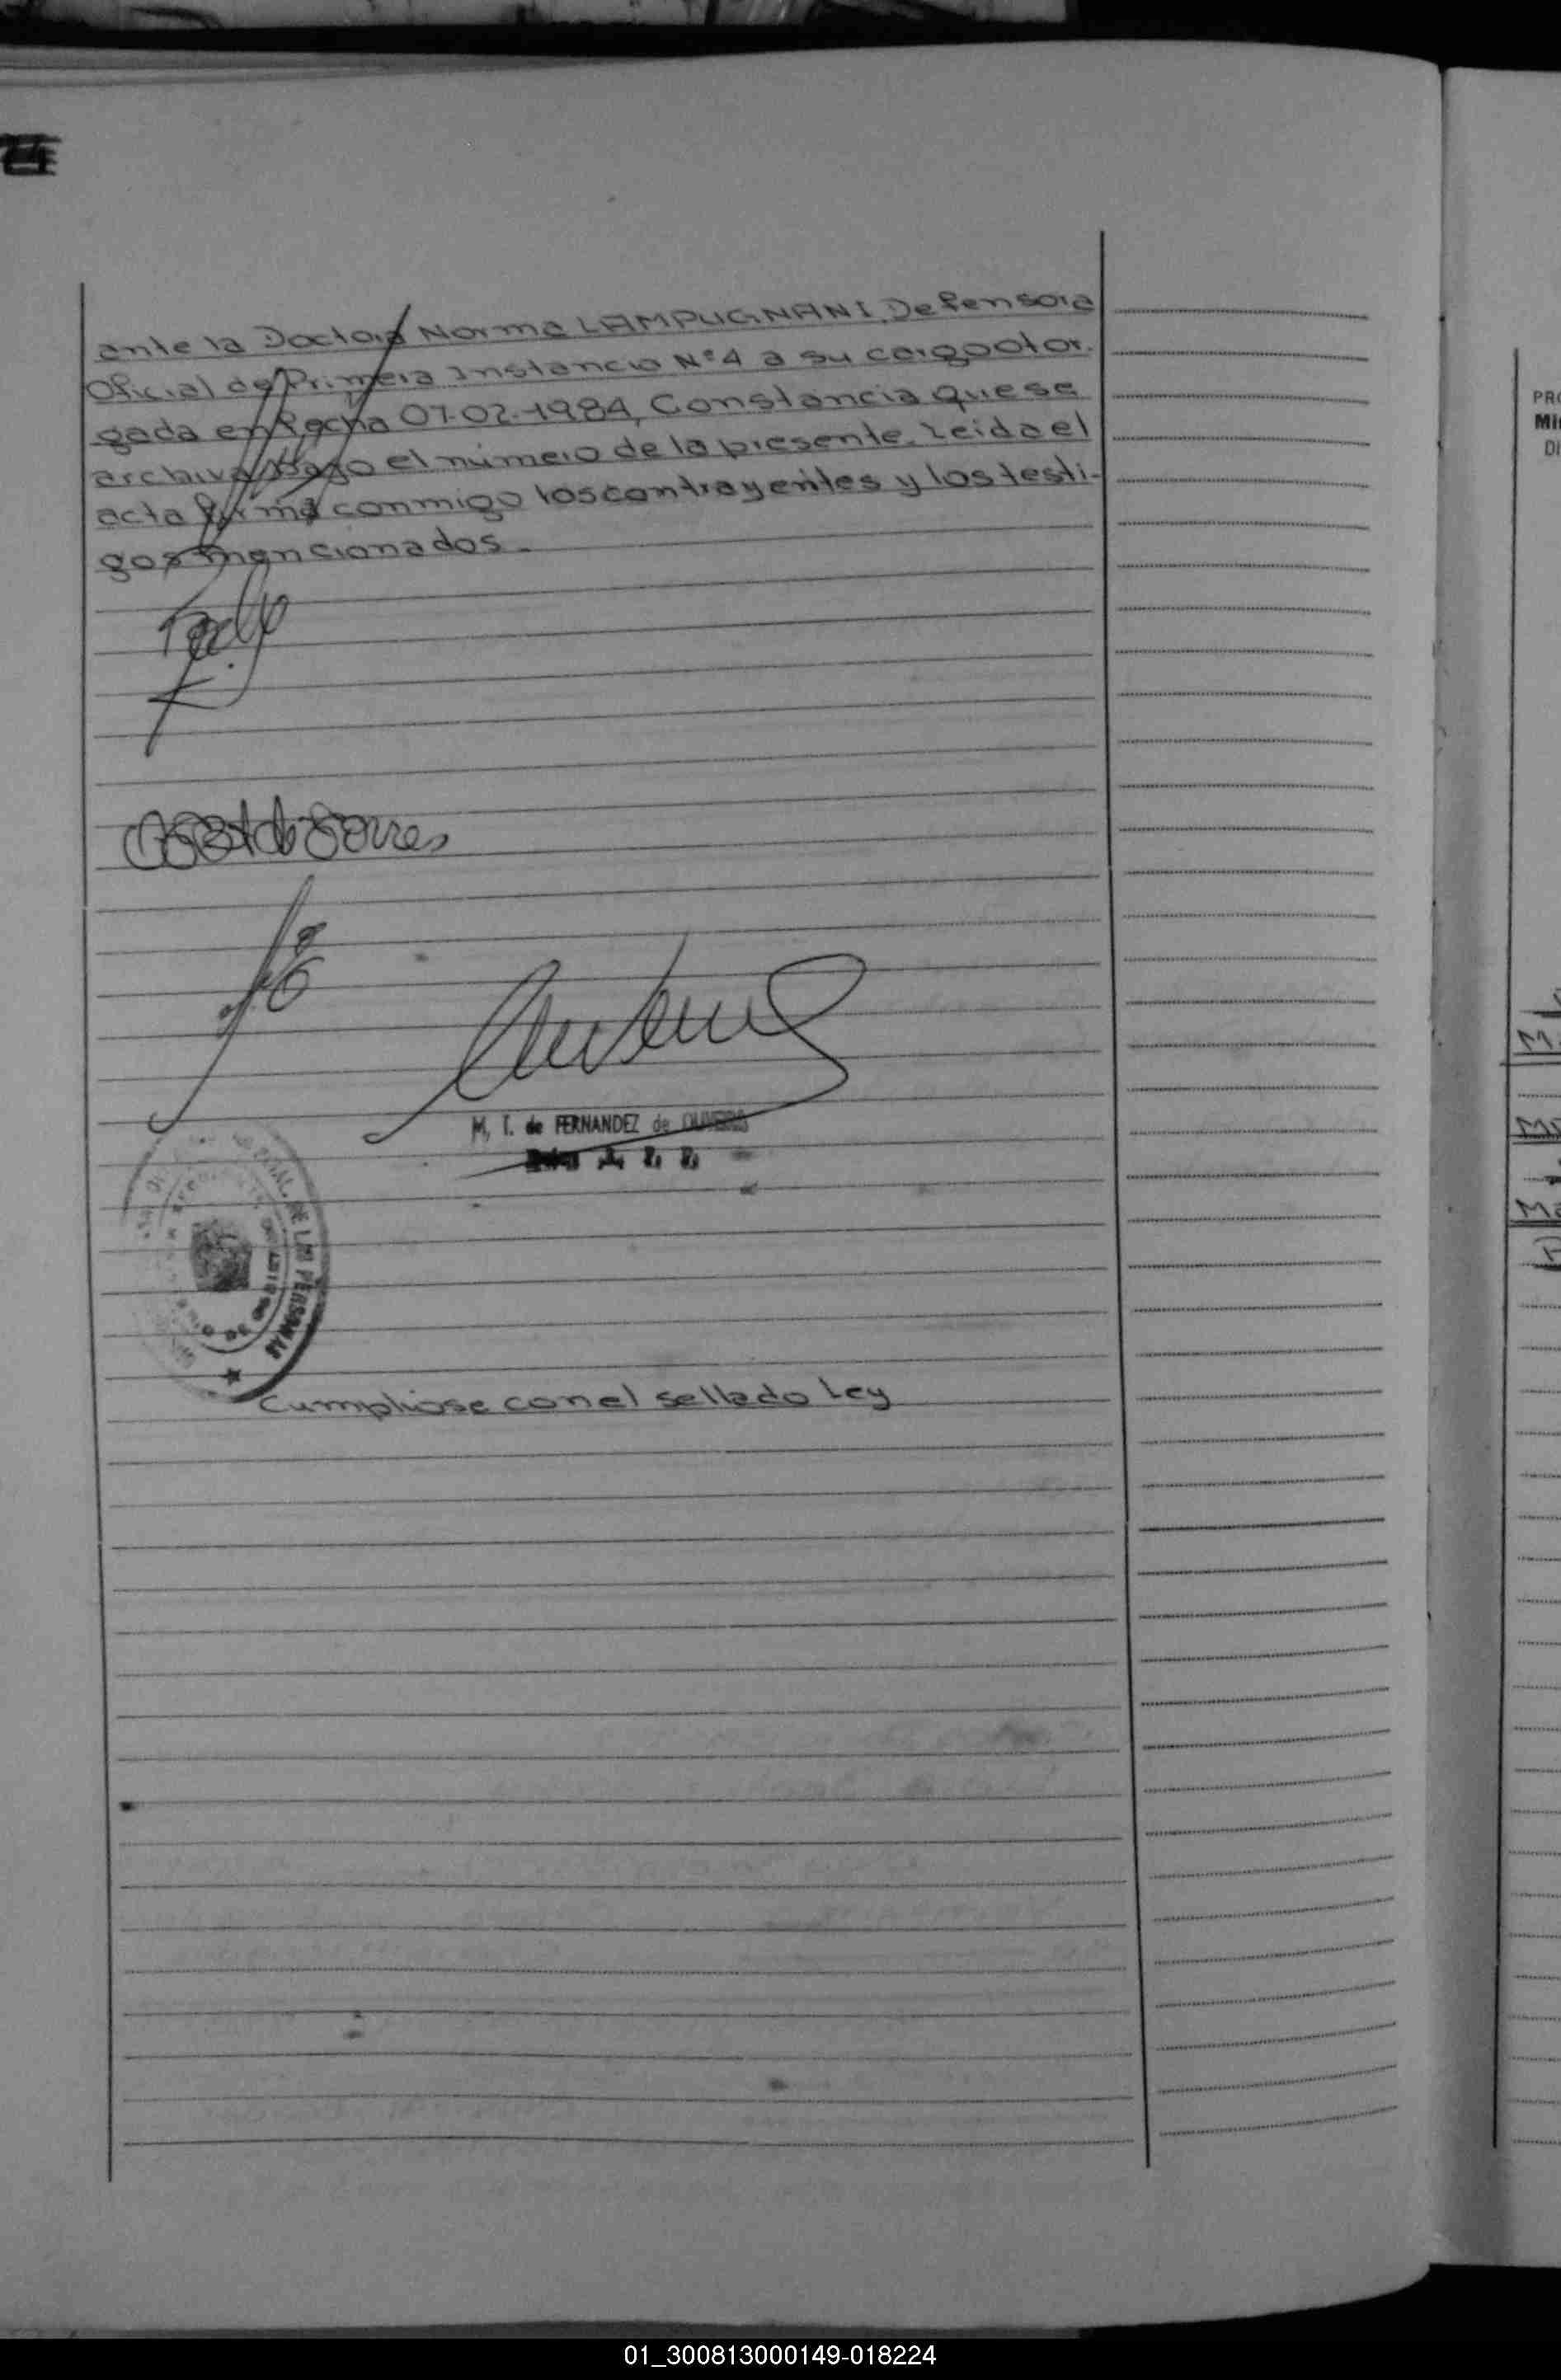 ante la Doctora Norma LAMPUGNANI, Defensora
Oficial de Primera Instancia N°4 a su cargo otor.
gada en fecha 07-02-1984, Constancia que se
archiva bajo el número de la presente. Leida el
acta firma conmigo los contrayentes y los testi-
gos mencionados.
de Torres
M. T. de FERNANDEZ de OLIVEIRA
DE LAS PERSONAS
Cumpliose con el sellado Ley
PRO
MI
DI
M.
01_300813000149-018224